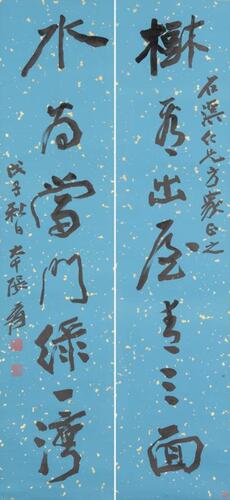 石溪仁兄方家正之
樹看出屋青三面
水為當門綠一灣
戊子秋日大千張爰